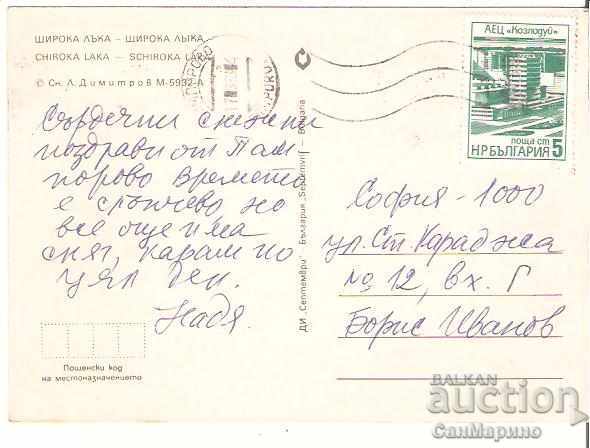 ШИРОКА ЛЪКА – ШИРОКА ЛЫКА
CHIROKA LAKA – SCHIROKA LAKA
© Сн. Л. Димитров М-5932-А
Сърдечни снежни
поздрави от Пам-
порово времето
е слънчево но
все още има
сняг, карам по
цял ден.
Надя.
Пощенски код
на местоназначението
ДИ „Септември" – България „Septemvri" – Bulgaria
АЕЦ «Козлодуй»
ПОЩА СТ
НР БЪЛГАРИЯ 5
София - 1000
ул. Ст. Караджа
№ 12, вх. Г
Борис Иванов
BALKAN
auction
СанМарино